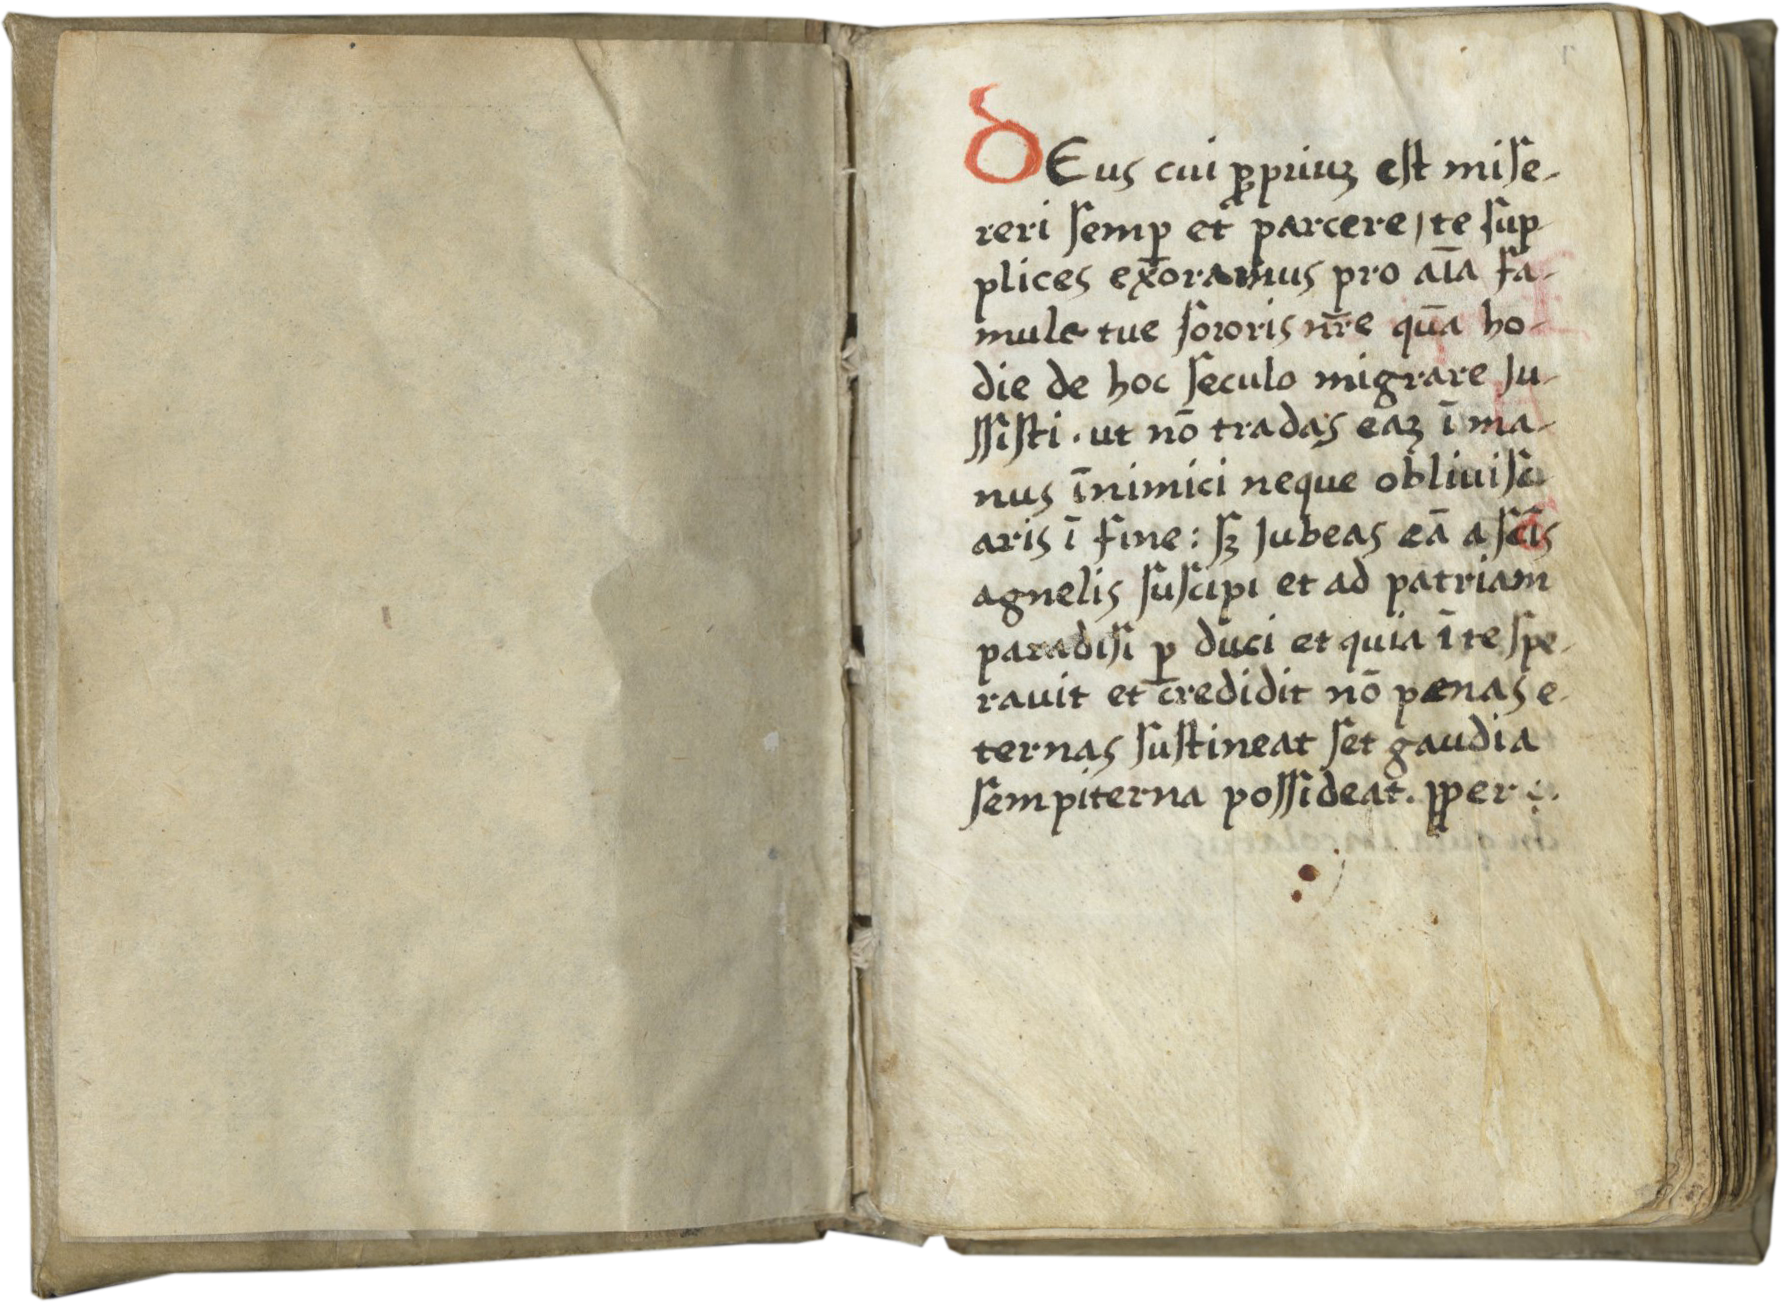 DEus cui ꝓpriuꝫ est miſe-
reri ſemꝑ et parcere / te ſup
plices exoramus pro aīa fa-
mule tue ſororis nr̄e quā ho-
die de hoc ſeculo migrare Ju-
ſſiſti · ut nō tradas eaꝫ ī ma-
nus īnimici neque obliuiſc
aris ī fine : ſꝫ Jubeas eā a ſcīs
agnelis ſuſcipi et ad patriam
paradiſi ꝑ duci et quia ī te ſpe-
rauit et credidit nō penas e-
ternas ſuſtineat ſet gaudia
ſempiterna poſſideat. per